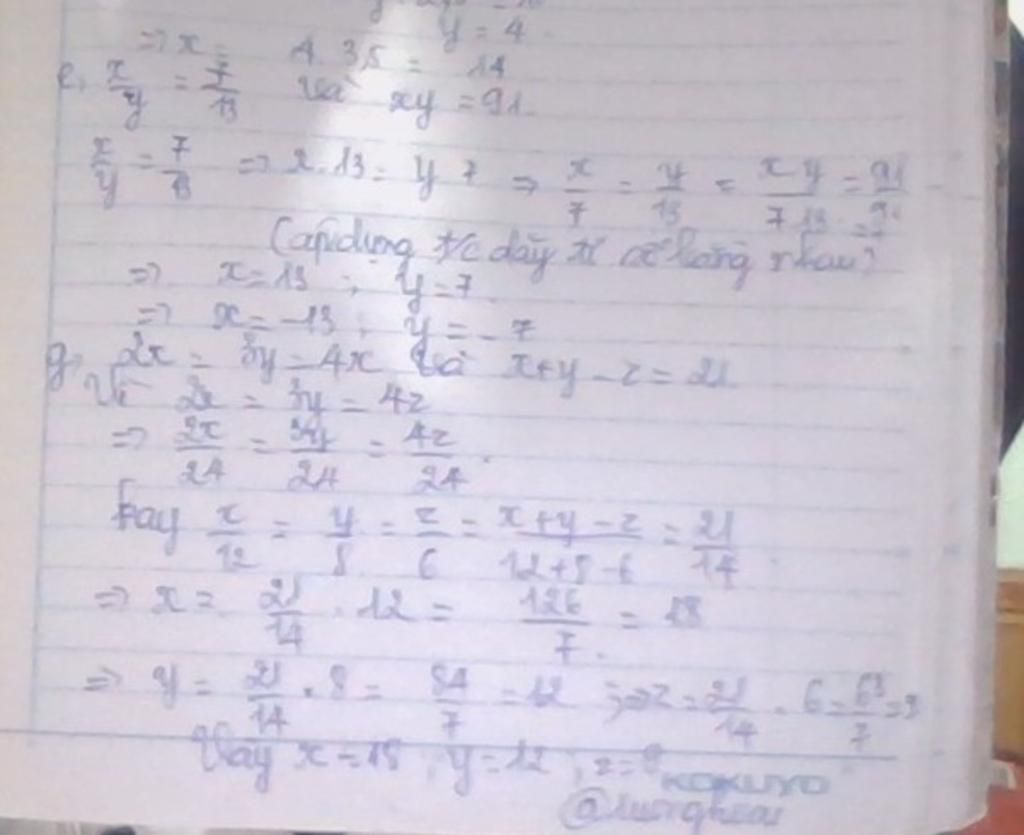 y = 4.
=> x = 4. 3,5 = 14
e, x/y = 7/13 và xy = 91.
x/y = 7/13 => x.13 = y 7 => x/7 = y/13 = xy/7.13 = 91/91
(áp dụng t/c dãy tỉ số bằng nhau)
=> x = 13 ; y = 7
=> x = -13 ; y = -7
g, 2x = 3y = 4x và x+y-z = 21
Vì 2x = 3y = 4z
=> 2x/24 = 3y/24 = 4z/24.
hay x/12 = y/8 = z/6 = x+y-z/12+8-6 = 21/14
=> x = 21/14 . 12 = 126/7 = 18
=> y = 21/14 . 8 = 84/7 = 12 ; => z = 21/14 . 6 = 63/7 = 9
Vậy x = 18, y = 12, z = 9
KOKUYO